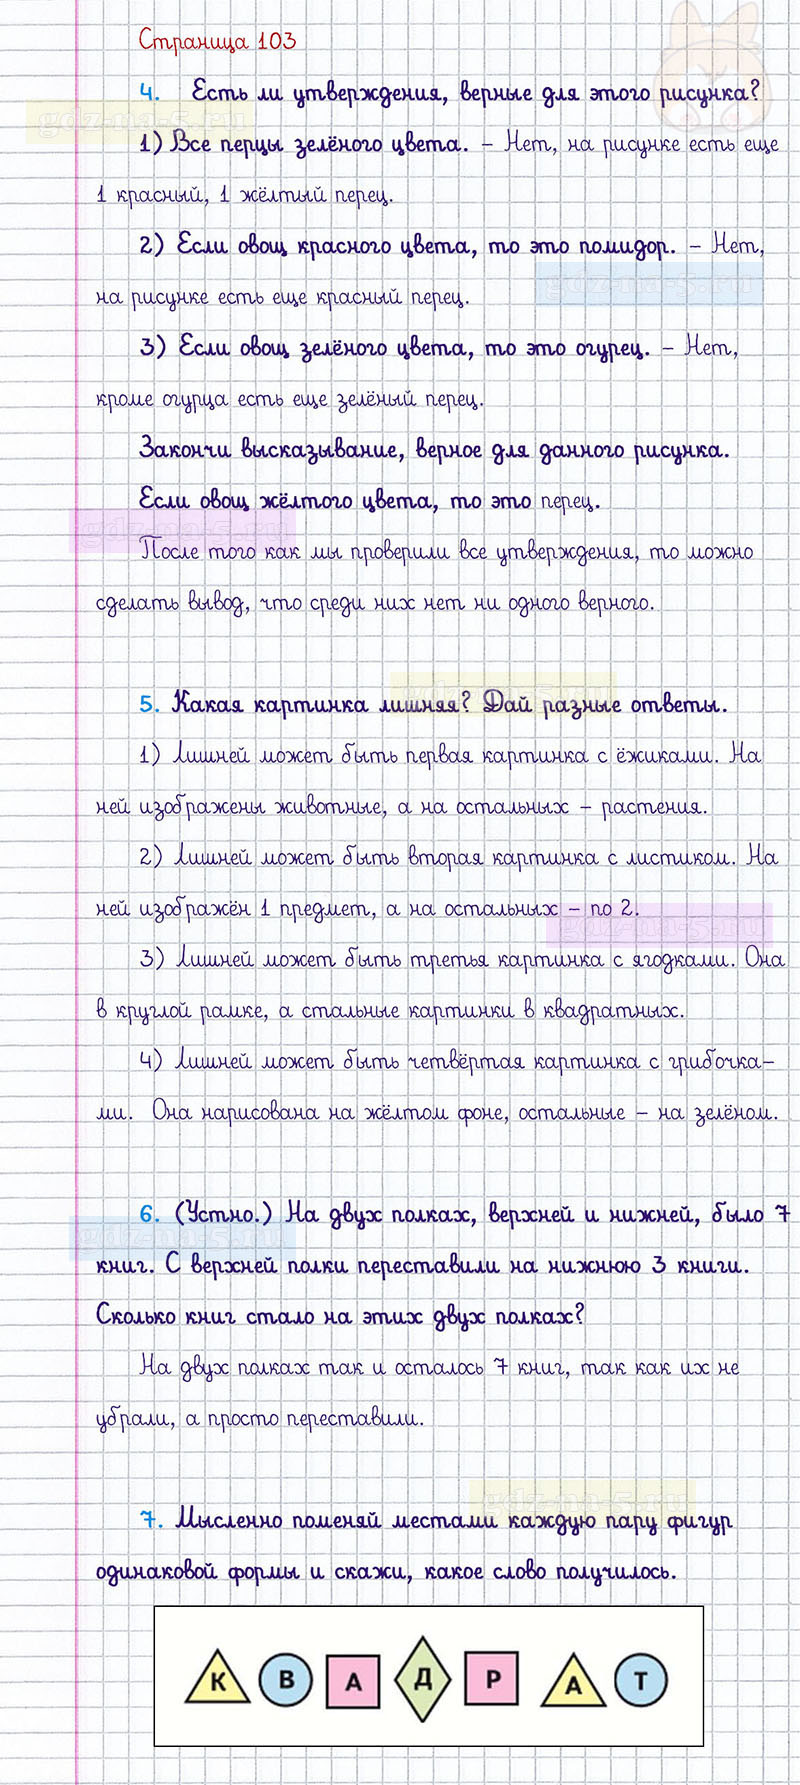 Страница 103
4. Есть ли утверждения, верные для этого рисунка?
gdz-na-5.ru
1) Все перцы зелёного цвета. – Нет, на рисунке есть еще
1 красный, 1 жёлтый перец.
2) Если овощ красного цвета, то это помидор. – Нет,
gdz-na-5.ru
на рисунке есть еще красный перец.
3) Если овощ зелёного цвета, то это огурец. – Нет,
кроме огурца есть еще зелёный перец.
Закончи высказывание, верное для данного рисунка.
Если овощ жёлтого цвета, то это перец.
gdz-na-5.ru
После того как мы проверили все утверждения, то можно
сделать вывод, что среди них нет ни одного верного.
gdz-na-5.ru
5. Какая картинка лишняя? Дай разные ответы.
1) Лишней может быть первая картинка с ёжиками. На
ней изображены животные, а на остальных – растения.
2) Лишней может быть вторая картинка с листиком. На
ней изображён 1 предмет, а на остальных – по 2.
gdz-na-5.ru
3) Лишней может быть третья картинка с ягодками. Она
в круглой рамке, а стальные картинки в квадратных.
4) Лишней может быть четвёртая картинка с грибочка-
ми. Она нарисована на жёлтом фоне, остальные – на зелёном.
6. (Устно.) На двух полках, верхней и нижней, было 7
gdz-na-5.ru
книг. С верхней полки переставили на нижнюю 3 книги.
Сколько книг стало на этих двух полках?
На двух полках так и осталось 7 книг, так как их не
убрали, а просто переставили.
gdz-na-5.ru
7. Мысленно поменяй местами каждую пару фигур
одинаковой формы и скажи, какое слово получилось.
К В А Д Р А Т